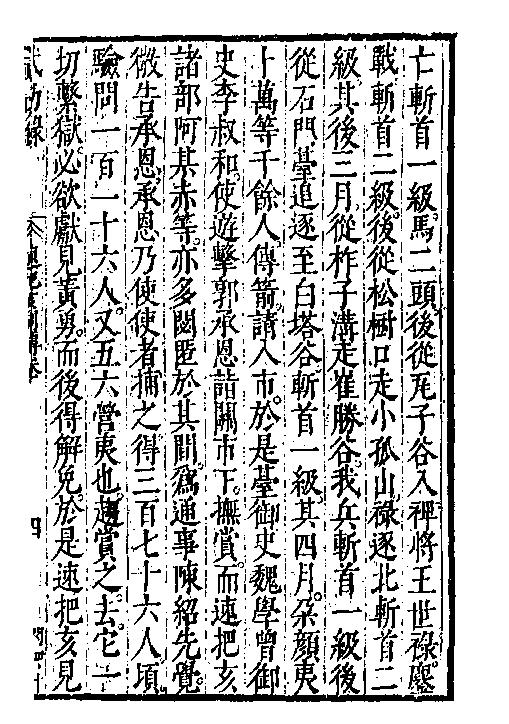 亡斬首一級。馬二頭。後從瓦子谷入。裨將王世祿鏖
戰斬首二級。後從松樹口走小孤山。祿逐北斬首二
級。其後三月。從柞子溝走崔勝谷。我兵斬首一級。後
從石門臺追逐至白塔谷。斬首一級。其四月。朵顏夷
十萬等千餘人。傳箭請入市。於是臺御史魏學曾御
史李叔和。使遊擊郭承恩詣關市下。撫賞。而速把亥
諸部阿其赤等。亦多閟匿於其間。爲通事陳紹先覺。
微告承恩。承恩乃使使者捕之。得三百七十六人。頃
驗問一百一十六人。又五六營夷也。趣賞之去。它一
切繫獄。必欲獻見黃勇。而後得解免。於是速把亥見
武功錄
四